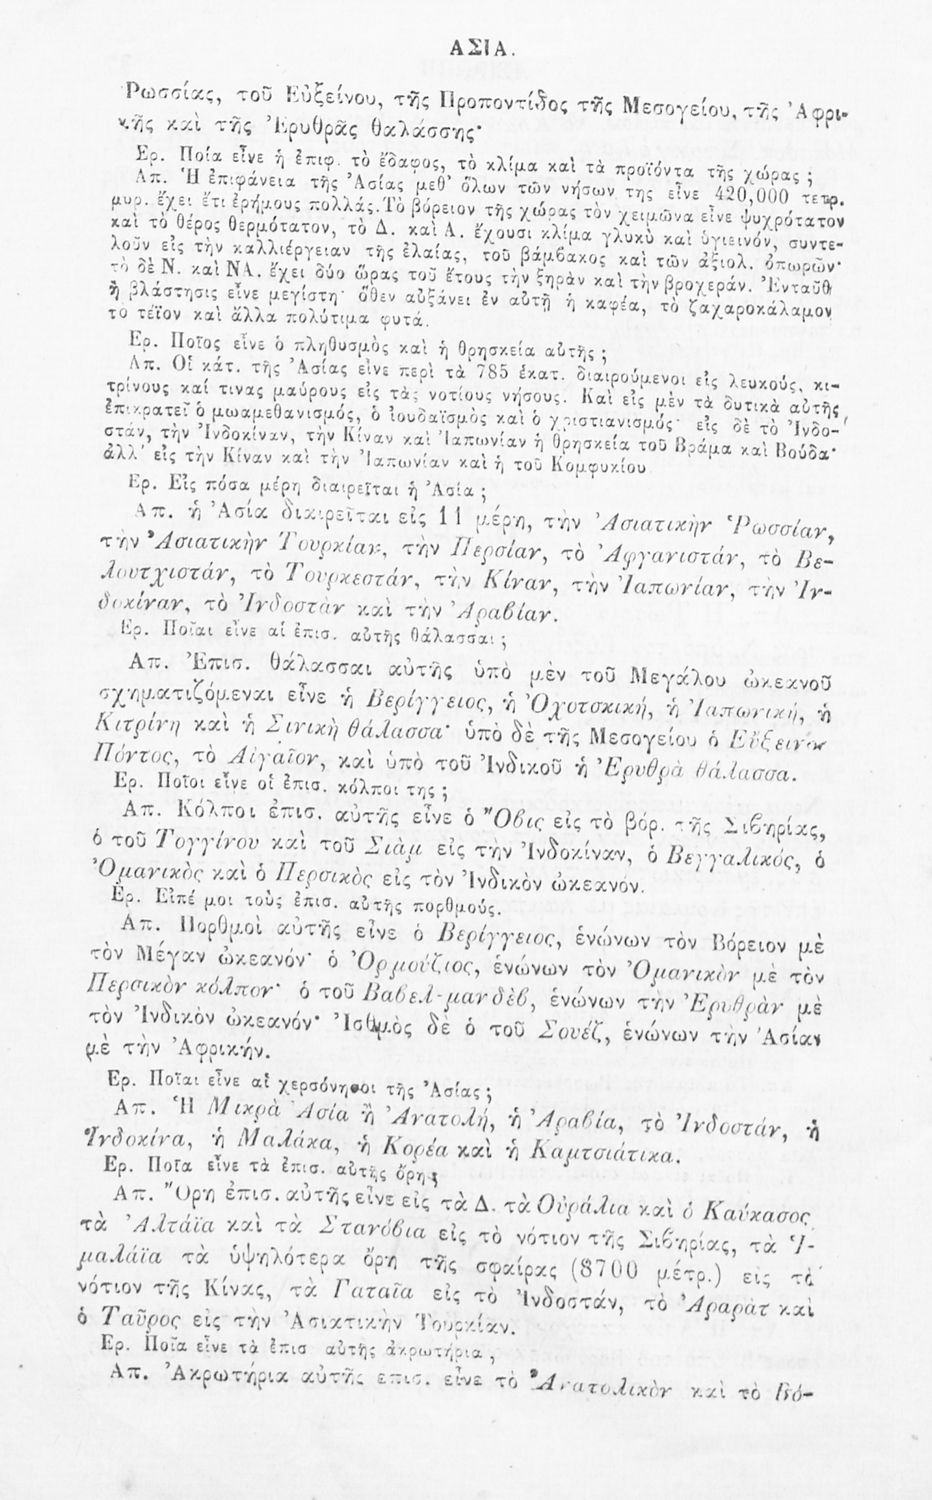 ΑΣΙΑ.
Ῥωσσίας, τοῦ Εὐξείνου, τῆς Προποντίδος τῆς Μεσογείου, τῆς Ἀφρι-
κῆς καὶ τῆς Ἐρυθρᾶς θαλάσσης·
Ερ. Ποία εἶνε ἡ ἐπιφ. τὸ ἔδαφος, τὸ κλίμα καὶ τὰ προϊόντα τῆς χώρας ;
Απ. Ἡ ἐπιφάνεια τῆς Ἀσίας μεθ' ὅλων τῶν νήσων της εἶνε 420,000 τετρ.
μυρ. ἔχει ἔτι ἐρήμους πολλάς. Τὸ βόρειον τῆς χώρας τὸν χειμῶνα εἶνε ψυχρότατον
καὶ τὸ θέρος θερμότατον, τὸ Δ. καὶ Α. ἔχουσι κλίμα γλυκὺ καὶ ὑγιεινόν, συντε-
λοῦν εἰς τὴν καλλιέργειαν τῆς ἐλαίας, τοῦ βάμβακος καὶ τῶν ἀξιολ. ὀπωρῶν·
τὸ δὲ Ν. καὶ ΝΑ. ἔχει δύο ὥρας τοῦ ἔτους τὴν ξηρὰν καὶ τὴν βροχεράν. Ἐνταῦθ
ἡ βλάστησις εἶνε μεγίστη· ὅθεν αὐξάνει ἐν αὐτῇ ἡ καφέα, τὸ ζαχαροκάλαμον
τὸ τέϊον καὶ ἄλλα πολύτιμα φυτά.
Ερ. Ποῖος εἶνε ὁ πληθυσμὸς καὶ ἡ θρησκεία αὐτῆς ;
Απ. Οἱ κάτ. τῆς Ἀσίας εἶνε περὶ τὰ 785 ἑκατ. διαιρούμενοι εἰς λευκούς, κι-
τρίνους καί τινας μαύρους εἰς τὰς νοτίους νήσους. Καὶ εἰς μὲν τὰ δυτικὰ αὐτῆς
ἐπικρατεῖ ὁ μωαμεθανισμός, ὁ ἰουδαϊσμὸς καὶ ὁ χριστιανισμός· εἰς δὲ τὸ Ἰνδο-
στάν, τὴν Ἰνδοκίναν, τὴν Κίναν καὶ Ἰαπωνίαν ἡ θρησκεία τοῦ Βράμα καὶ Βούδα·
ἀλλ' εἰς τὴν Κίναν καὶ τὴν Ἰαπωνίαν καὶ ἡ τοῦ Κομφυκίου
Ερ. Εἰς πόσα μέρη διαιρεῖται ἡ Ἀσία ;
Απ. ἡ Ἀσία διαιρεῖται εἰς 11 μέρη, τὴν Ἀσιατικὴν Ῥωσσίαν,
τὴν Ἀσιατικὴν Τουρκίαν, τὴν Περσίαν, τὸ Ἀφγανιστάν, τὸ Βε-
λουτχιστάν, τὸ Τουρκεστάν, τὴν Κίναν, τὴν Ἰαπωνίαν, τὴν Ἰν-
δοκίναν, τὸ Ἰνδοστὰν καὶ τὴν Ἀραβίαν.
Ερ. Ποῖαι εἶνε αἱ ἐπισ. αὐτῆς θάλασσαι ;
Απ. Ἐπισ. θάλασσαι αὐτῆς ὑπὸ μὲν τοῦ Μεγάλου ὠκεανοῦ
σχηματιζόμεναι εἶνε ἡ Βερίγγειος, ἡ Ὀχοτσκική, ἡ Ἰαπωνική, ἡ
Κιτρίνη καὶ ἡ Σινικὴ θάλασσα· ὑπὸ δὲ τῆς Μεσογείου ὁ Εὔξεινος
Πόντος, τὸ Αἰγαῖον, καὶ ὑπὸ τοῦ Ἰνδικοῦ ἡ Ἐρυθρὰ θάλασσα.
Ερ. Ποῖοι εἶνε οἱ ἐπισ. κόλποι της ;
Απ. Κόλποι ἐπισ. αὐτῆς εἶνε ὁ Ὄβις εἰς τὸ βόρ. τῆς Σιβηρίας,
ὁ τοῦ Τογγίνου καὶ τοῦ Σιὰμ εἰς τὴν Ἰνδοκίναν, ὁ Βεγγαλικός, ὁ
Ὀμανικὸς καὶ ὁ Περσικὸς εἰς τὸν Ἰνδικὸν ὠκεανόν.
Ερ. Εἰπέ μοι τοὺς ἐπισ. αὐτῆς πορθμούς.
Απ. Πορθμοὶ αὐτῆς εἶνε ὁ Βερίγγειος, ἑνώνων τὸν Βόρειον μὲ
τὸν Μέγαν ὠκεανόν· ὁ Ὁρμούζιος, ἑνώνων τὸν Ὀμανικὸν μὲ τὸν
Περσικὸν κόλπον· ὁ τοῦ Βαβελ-μανδὲβ, ἑνώνων τὴν Ἐρυθρὰν μὲ
τὸν Ἰνδικὸν ὠκεανόν· Ἰσθμὸς δὲ ὁ τοῦ Σουέζ, ἑνώνων τὴν Ἀσίαν
μὲ τὴν Ἀφρικήν.
Ερ. Ποῖαι εἶνε αἱ χερσόνησοι τῆς Ἀσίας ;
Απ. Ἡ Μικρὰ Ἀσία ἢ Ἀνατολή, ἡ Ἀραβία, τὸ Ἰνδοστάν, ἡ
Ἰνδοκίνα, ἡ Μαλάκα, ἡ Κορέα καὶ ἡ Καμτσιάτικα.
Ερ. Ποῖα εἶνε τὰ ἐπισ. αὐτῆς ὄρη ;
Απ. Ὄρη ἐπισ. αὐτῆς εἶνε εἰς τὰ Δ. τὰ Οὐράλια καὶ ὁ Καύκασος
τὰ Ἀλτάϊα καὶ τὰ Στανόβια εἰς τὸ νότιον τῆς Σιβηρίας, τὰ Ἱ-
μαλάϊα τὰ ὑψηλότερα ὄρη τῆς σφαίρας (8700 μέτρ.) εἰς τὸ
νότιον τῆς Κίνας, τὰ Γαταῖα εἰς τὸ Ἰνδοστάν, τὸ Ἀραρὰτ καὶ
ὁ Ταῦρος εἰς τὴν Ἀσιατικὴν Τουρκίαν.
Ερ. Ποῖα εἶνε τὰ ἐπισ αὐτῆς ἀκρωτήρια ;
Απ. Ἀκρωτήρια αὐτῆς επισ. εἶνε τὸ Ἀνατολικὸν καὶ τὸ Βό-